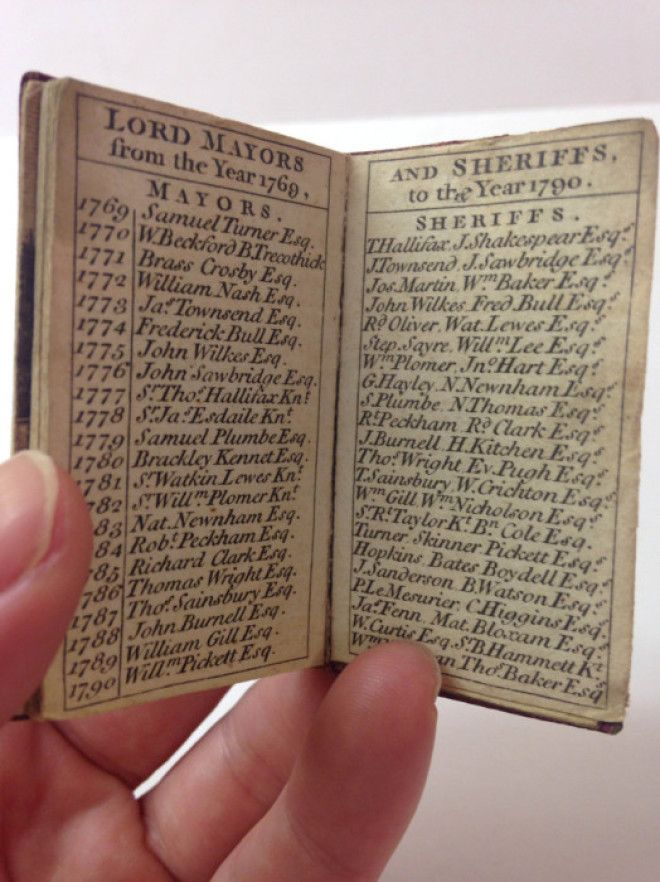 LORD MAYORS
from the Year 1769,
MAYORS.
1769 Samuel Turner Esq.
1770 W. Beckford B. Trecothick
1771 Brass Crosby Esq.
1772 William Nash Esq.
1773 Jas. Townsend Esq.
1774 Frederick Bull Esq.
1775 John Wilkes Esq.
1776 John Sawbridge Esq.
1777 Sr. Thos. Hallifax Knt.
1778 Sr. Jas. Esdaile Knt.
1779 Samuel Plumbe Esq.
1780 Brackley Kennet Esq.
1781 Sr. Watkin Lewes Knt.
782 Sr. Willm. Plomer Knt.
83 Nat. Newnham Esq.
84 Robt. Peckham Esq.
785 Richard Clark Esq.
1786 Thomas Wright Esq.
1787 Thos. Sainsbury Esq.
1788 John Burnell Esq.
1789 William Gill Esq.
1790 Willm. Pickett Esq.
AND SHERIFFS,
to the Year 1790.
SHERIFFS.
T. Hallifax, J. Shakespear Esqrs.
J. Townsend, J. Sawbridge Esqrs.
Jos. Martin, Wm. Baker Esqrs.
John Wilkes, Fred. Bull Esqrs.
Rd. Oliver, Wat. Lewes Esqrs.
Step. Sayre, Willm. Lee Esqrs.
Wm. Plomer, Jno. Hart Esqrs.
G. Hayley, N. Newnham Esqrs.
S. Plumbe, N. Thomas Esqrs.
Rt. Peckham, Rd. Clark Esqrs.
J. Burnell, H. Kitchen Esqrs.
Thos. Wright, Ev. Pugh Esqrs.
T. Sainsbury, W. Crichton Esqrs.
Wm. Gill, Wm. Nicholson Esqrs.
Sr. Rt. Taylor Kt. Bn. Cole Esq.
Turner, Skinner, Pickett Esqrs.
Hopkins, Bates, Boydell Esqrs.
J. Sanderson, B. Watson Esqrs.
P. Le Mesurier, C. Higgins Esqrs.
Jas. Fenn, Mat. Bloxam Esqrs.
W. Curtis Esq. Sr. B. Hammett Kt.
Thos. Baker Esq